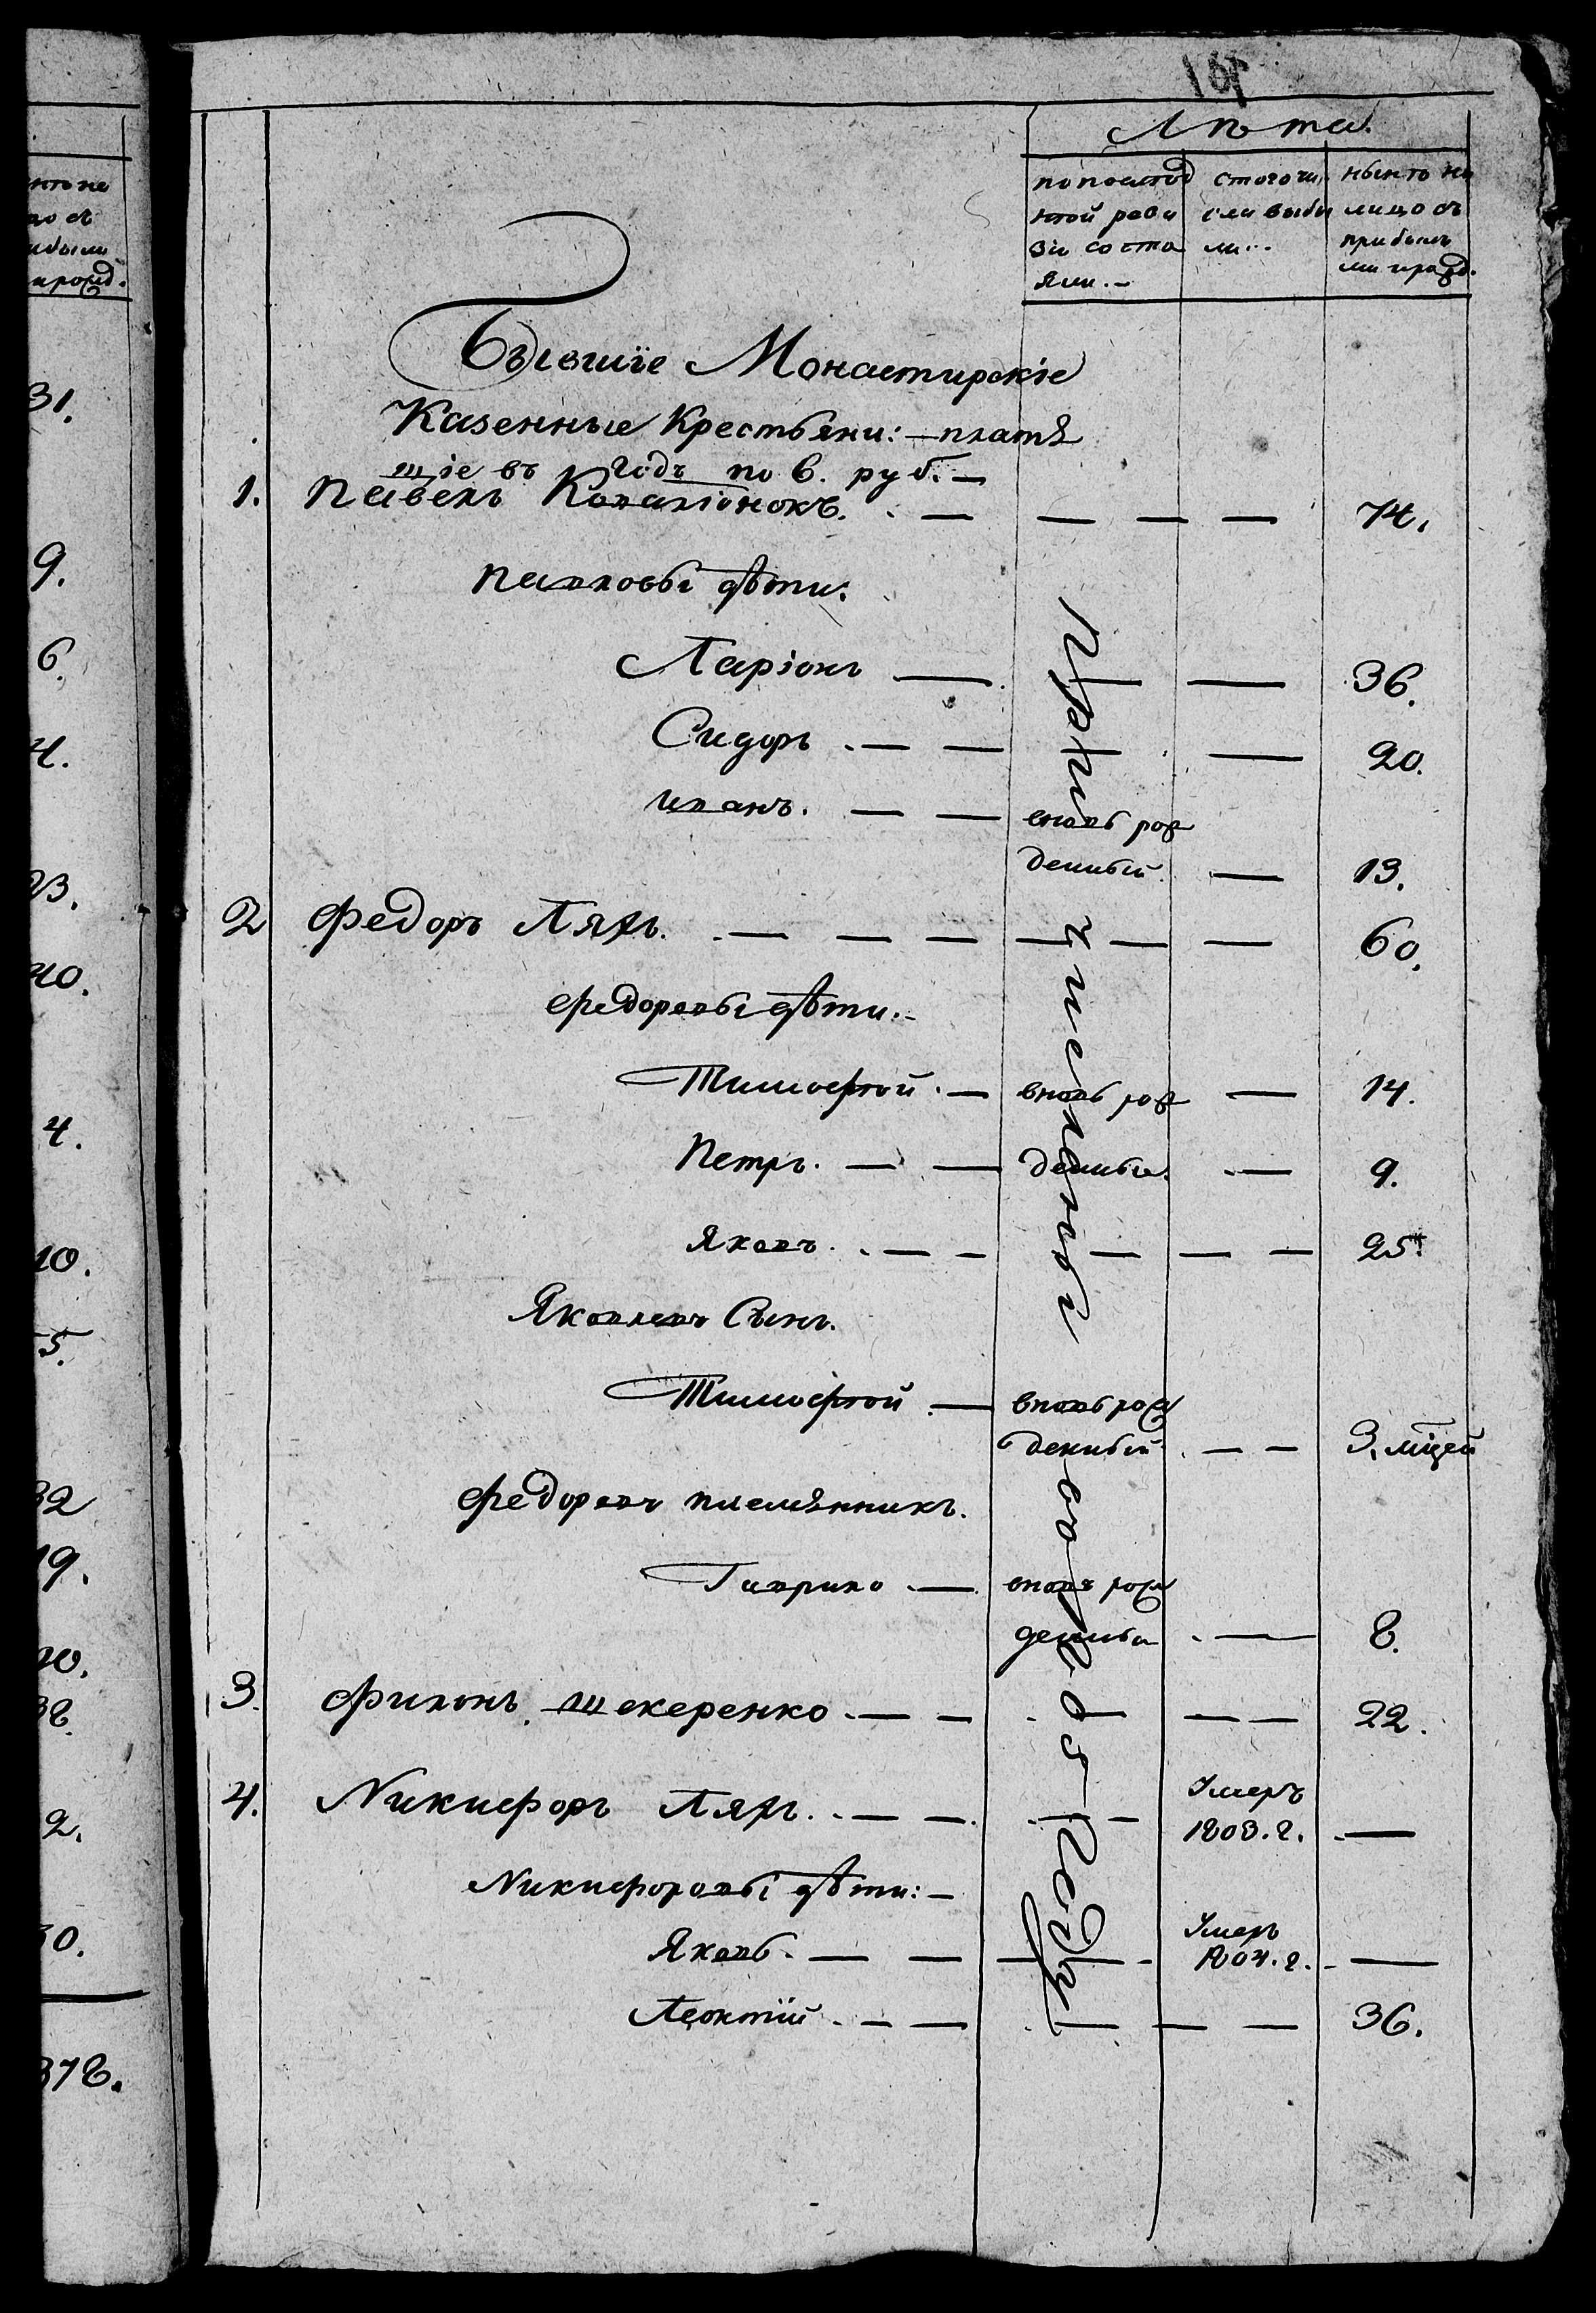 Лѣта.
попослѣд
ней реви
зіи состо
яли.
стогочи
сла выбы
ли
нынѣ на
лицо съ
прибылы
ми и рожд.
Бывшіе Монастирскіе
Казенные Крестьяни: платя
щіе въ годъ по 6. руб.
1. Павелъ 74.
павловы дѣти:
Ларіонъ 36.
Сидоръ 20.
иванъ. вновь рож
денный 13.
2 Федоръ Ляхъ. 60.
федоровы дѣти.
Тимофѣй вновь рож 14.
Петръ. денные. 9.
Яковъ. 25.
Яковлевъ Сынъ.
Тимофѣй вновь рож
денный 3. мцей
федоровъ племянникъ.
Гаврило вновь рож
денный 8.
3. филонъ Шекеренко 22.
4. Никифоръ Ляхъ. Умеръ
1803. г.
Никифоровы дѣти:
Яковъ Умеръ
1804. г.
Леонтій 36.
Причисленны 1805 Году
31.
9.
6.
4.
23.
40.
4.
10.
5.
32
19.
2.
30.
378.